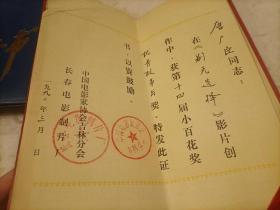 唐广臣同志：
在《选择》影片创
作中，获第十四届小百花奖
优秀故事片奖，特发此证
书，以资鼓励。
中国电影家协会吉林分会
长春电影制片厂
一九八年三月 日